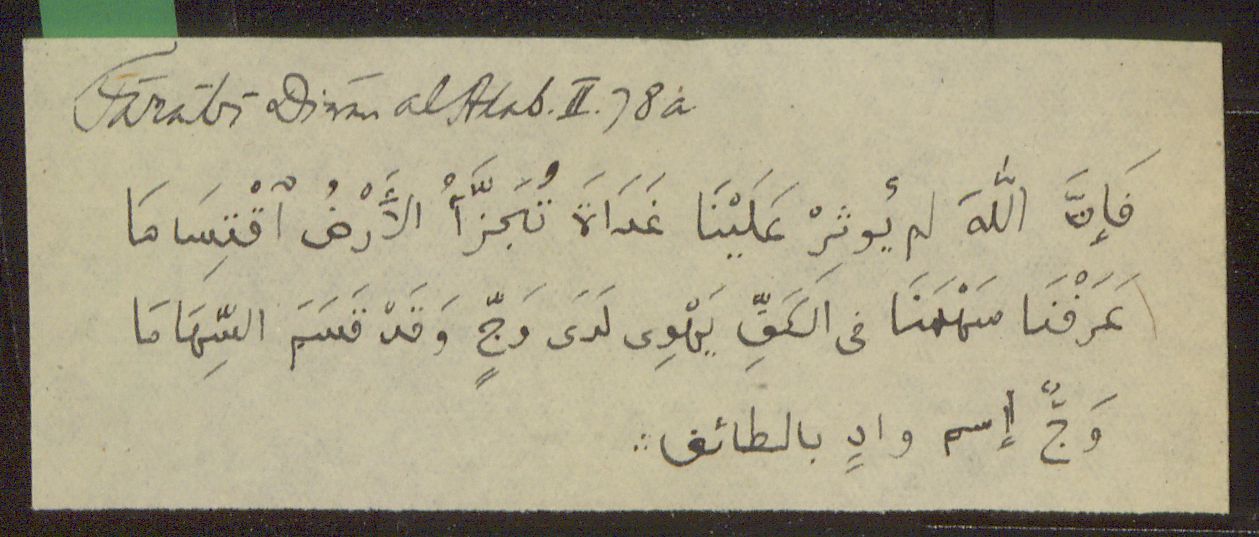 Fārābī Dīwān al Adab. II. 78a
فَإِنَّ اللّٰهَ لم يُوثِرْ عَلَيْنَا غَدَاةَ تُجَزَّأُ الأَرْضُ ٱقْتِسَاما
عَرَفْنَا سَهْمَنَا فى الكَفِّ يَهْوِى لَدَى وَجٍّ وَقَدْ قَسَمَ السِّهَامَا
وَجٌّ إسم وادٍ بالطائف